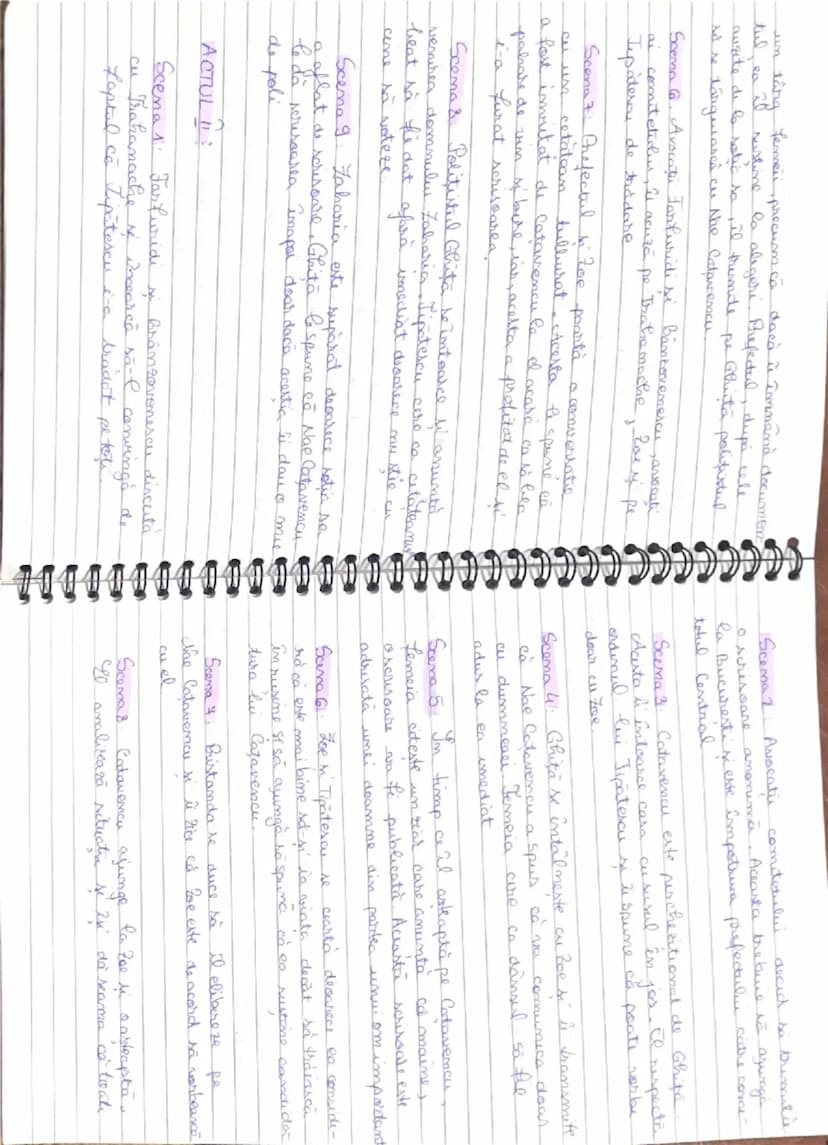 un tânăr femeii, precum că dacă îi înmânează documen-
tul, ea îl susține la alegeri. Prefectul, după cele
auzite de la soția sa, îl trimite pe Ghiță polițistul
să se târguiască cu Nae Cațavencu.
Scena 6: Avocații Farfuridi și Brânzovenescu, avocații
ai comitetului îi acuză pe Trahanache, Zoe și pe
Tipătescu de trădare
Scena 7: Prefectul și Zoe poartă o conversație
cu un cetățean tulburat. Acesta le spune că
a fost invitat de Cațavencu la el acasă ca să bea
pahare de vin și bere, iar, acesta a profitat de el și
i-a furat scrisoarea.
Scena 8: Polițistul Ghiță se întoarce și anunță
venirea domnului Zaharia. Tipătescu cere ca cetățeanul
beat să fie dat afară imediat deoarece nu știe cu
cine să voteze
Scena 9: Zaharia este supărat deoarece soția sa
a aflat de scrisoare. Ghiță le spune că Nae Cațavencu
le dă scrisoarea înapoi doar dacă aceștia îi dau o mie
de poli
ACTUL II:
Scena 1: Farfuridi și Brânzovenescu discută
cu Trahanache și încearcă să-l convingă de
faptul că Tipătescu i-a trădat pe toți
Scena 2: Avocații comitetului decid să trimită
o scrisoare anonimă. Aceasta trebuie să ajungă
la București și este împotriva prefectului către comi-
tetul Central
Scena 3: Cațavencu este percheziționat de Ghiță.
Acesta îi întoarce casa cu susul în jos. El respectă
ordinul lui Tipătescu și îi spune că poate vorbi
doar cu Zoe.
Scena 4: Ghiță se întâlnește cu Zoe și îi transmite
că Nae Cațavencu a spus că va comunica doar
cu dumneaei. Femeia cere ca dânsul să fie
adus la ea imediat
Scena 5: În timp ce îl așteaptă pe Cațavencu,
femeia citește un ziar care anunță că maine,
o scrisoare va fi publicată. Această scrisoare este
adresată unei doamne din partea unui om important
Scena 6: Zoe și Tipătescu se ceartă deoarece ea conside-
ră că este mai bine să-și ia viața decât să trăiască
în rușine și să ajungă să spună că ea susține candida-
tura lui Cațavencu.
Scena 7: Pristanda se duce să îl elibereze pe
Nae Cațavencu și îi zice că Zoe este de acord să vorbească
cu el
Scena 8 Cațavencu ajunge la Zoe și o așteaptă.
El analizează situația și își dă seama că toate